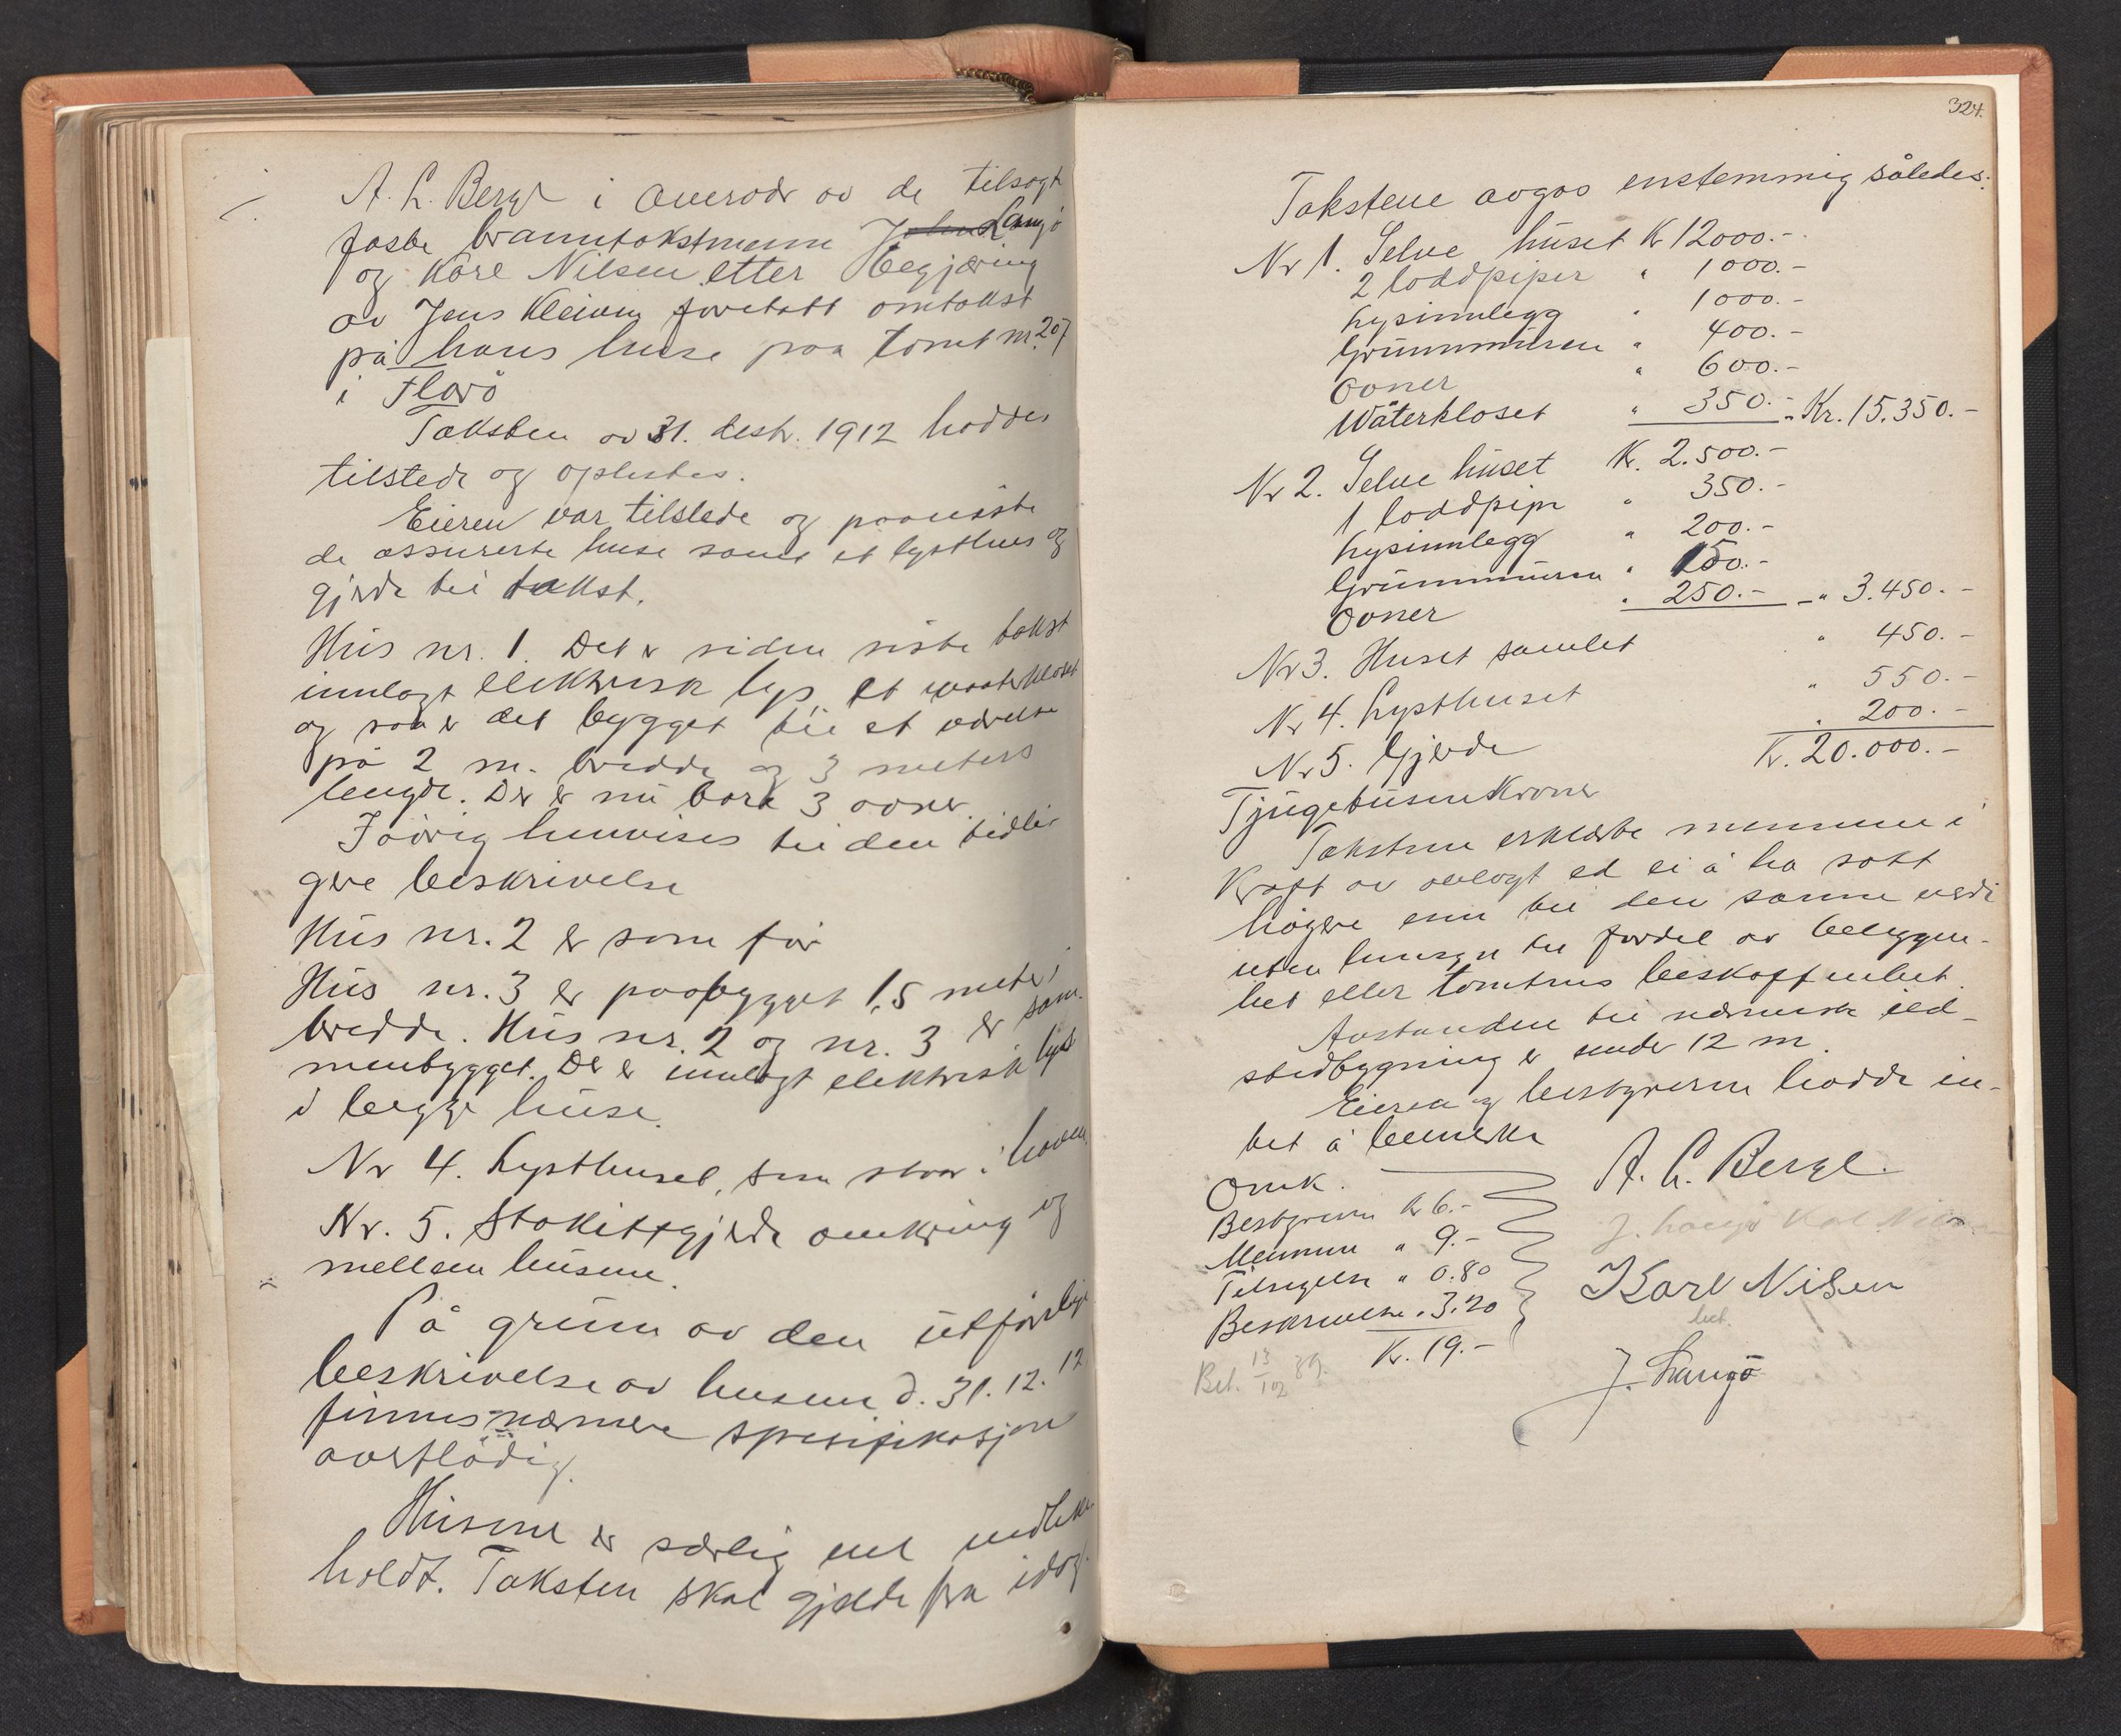 A. L. Berge i overvær av de tilsagte
faste branntakstmenn Johan Langø
og Kåre Nilsen etter begjæring
av Jens Kleiven foretatt omtakst
på hans huse paa tomt nr. 207
i Florø
Taksten av 31. desbr. 1912 haddes
tilstede og oplestes.
Eieren var tilstede og paaviste
de assurerte huse samt et lysthus og
gjerde til takst.
Hus nr. 1. Det er siden siste takst
innlagt elektrisk lys, et waterkloset
og saa er det bygget til et værelse
på 2 m. bredde og 3 meters
lengde. Der er nu bare 3 ovner.
Iøvrig henvises til den tidlig
ere beskrivelse
Hus nr. 2 er som før
Hus nr. 3 er paabygget 1,5 meter i
bredde. Hus nr. 2 og nr. 3 er sam-
menbygget. Der er innlagt elektrisk lys
i begge huse.
Nr 4. Lysthuset, som staar i haven
Nr. 5. Stakittgjerde omkring og
mellem husene.
På grunn av den utførlige
beskrivelse av husene d. 31.12.12
finnes nærmere spesifikasjon
overflødig.
Husene er særlig vel vedlike
holdt. Taksten skal gjelde fra idag.
324.
Takstene avgas enstemmig således:
Nr 1. Selve huset Kr 12000.-
2 loddpiper " 1000.-
Lysinnlegg " 1000.-
Grunnmuren " 400.-
Ovner " 600.-
Waterkloset " 350.- Kr. 15.350.-
Nr 2. Selve huset Kr. 2.500.-
1 loddpipe " 350.-
Lysinnlegg " 200.-
Grunnmuren " 150.-
Ovner " 250.- " 3.450.-
Nr 3. Huset samlet " 450.-
Nr 4. Lysthuset " 550.-
Nr 5. Gjerde " 200.-
Kr. 20.000.-
Tjugetusen Kroner
Takstene erklærte mennene i
kraft av avlagt ed ei å ha satt
høgere enn til den sanne verdi
uten hensyn til fordel av beliggen-
het eller tomtens beskaffenhet.
Avstanden til nærmeste ild-
stedbygning er under 12 m.
Eieren og bestyreren hadde in-
tet å bemerke
Omk.
Bestyreren Kr 6.-
Mennene " 9.-
Tilsigelse " 0.80
Beskrivelse " 3.20
Kr. 19.-
Bet. 13/12 39.
A. L. Berge.
J. Langø Kåre Nilsen
Karl Nilsen
J. Langø